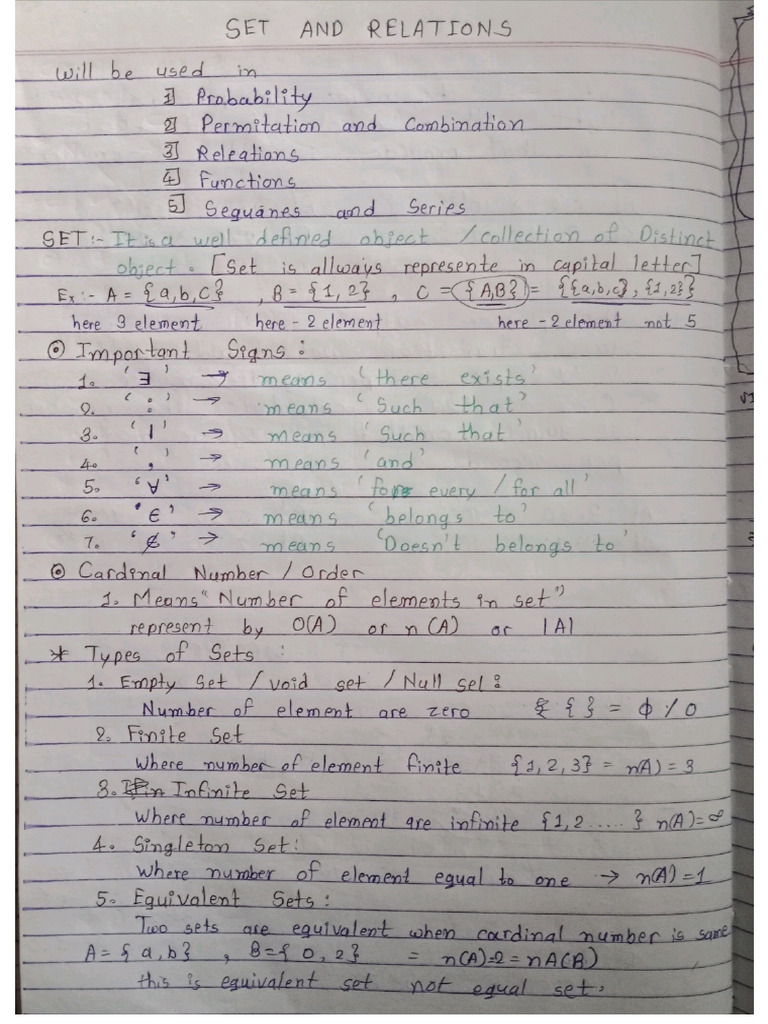 SET AND RELATIONS
Will be used in
1] Probability
2] Permitation and Combination
3] Releations
4] Functions
5] Sequanes and Series
SET :- It is a well defined object / collection of Distinct
object. [Set is allways represente in capital letter]
Ex :- A = {a,b,c} , B = {1,2} , C = {A,B} = {{a,b,c},{1,2}}
here 3 element here - 2 element here - 2 element not 5
⊙ Important Signs :
1. '∃' → means 'there exists'
2. ':' → means 'Such that'
3. '|' → means 'Such that'
4. ',' → means 'and'
5. '∀' → means 'for every / for all'
6. '∈' → means 'belongs to'
7. '∉' → means 'Doesn't belongs to'
⊙ Cardinal Number / Order
1. Means "Number of elements in set"
represent by O(A) or n(A) or |A|
* Types of Sets :
1. Empty Set / void set / Null set :
Number of element are zero { } = ϕ / 0
2. Finite Set
Where number of element finite {1,2,3} = n(A) = 3
3. Infinite Set
Where number of element are infinite {1,2 .....} n(A)=∞
4. Singleton Set:
Where number of element equal to one → n(A)=1
5. Equivalent Sets :
Two sets are equivalent when cardinal number is same
A = {a,b} , B={0,2} = n(A)=2=nA(B)
this is equivalent set not equal set.